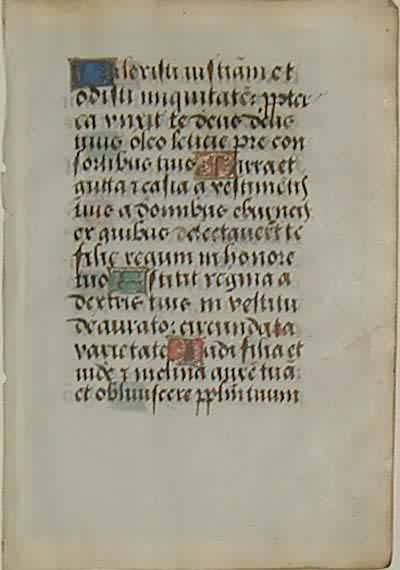 Dilexisti iusticiā et
odisti iniquitatē: ꝓpter
ea vnxit te deus deus
tuus oleo leticie pre con
sortibus tuis Mirra et
gutta ⁊ casia a vestimētis
tuis a domibus eburneis
ex quibus delectauerūt te
filie regum in honore
tuo Astitit regina a
dextris tuis in vestitu
deaurato: circundata
varietate Audi filia et
uide ⁊ inclina aurē tuā
et obliuiscere pplūm tuum